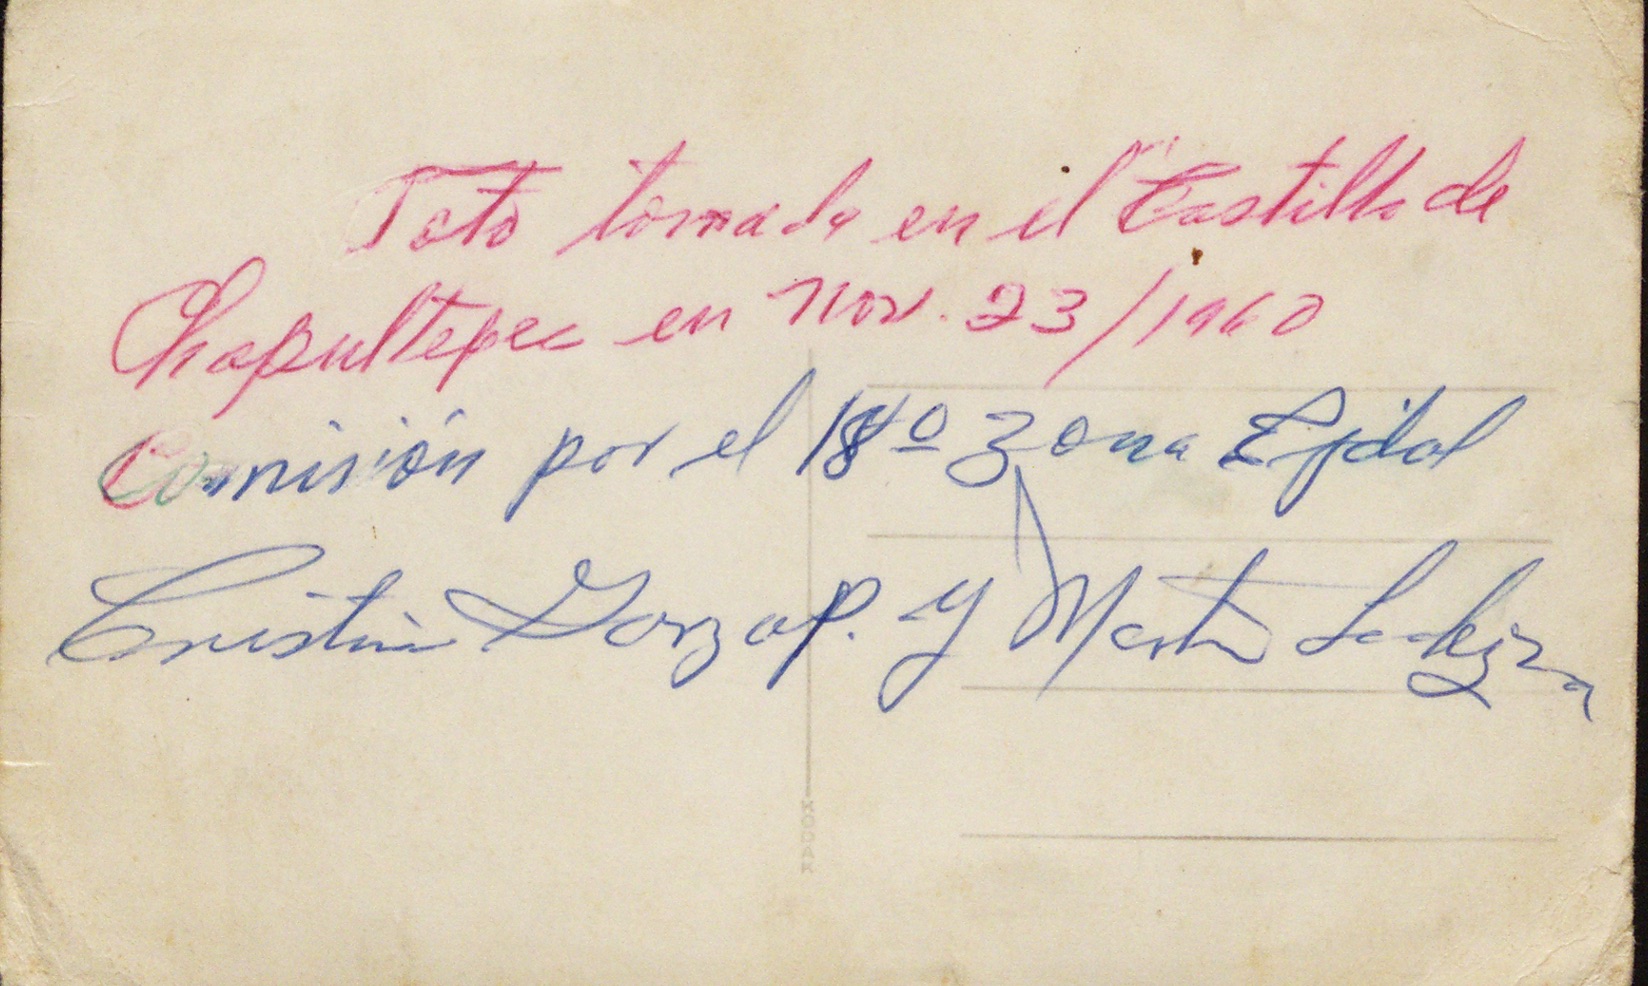 Foto tomada en el Castillo de
Chapultepec en Nov. 23/1960
Comisión por el 18º Zona Ejidal
Cristina Garza P. y Martin
KODAK